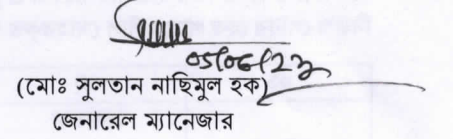 05/06/23
(মোঃ সুলতান নাছিমুল হক)
জেনারেল ম্যানেজার